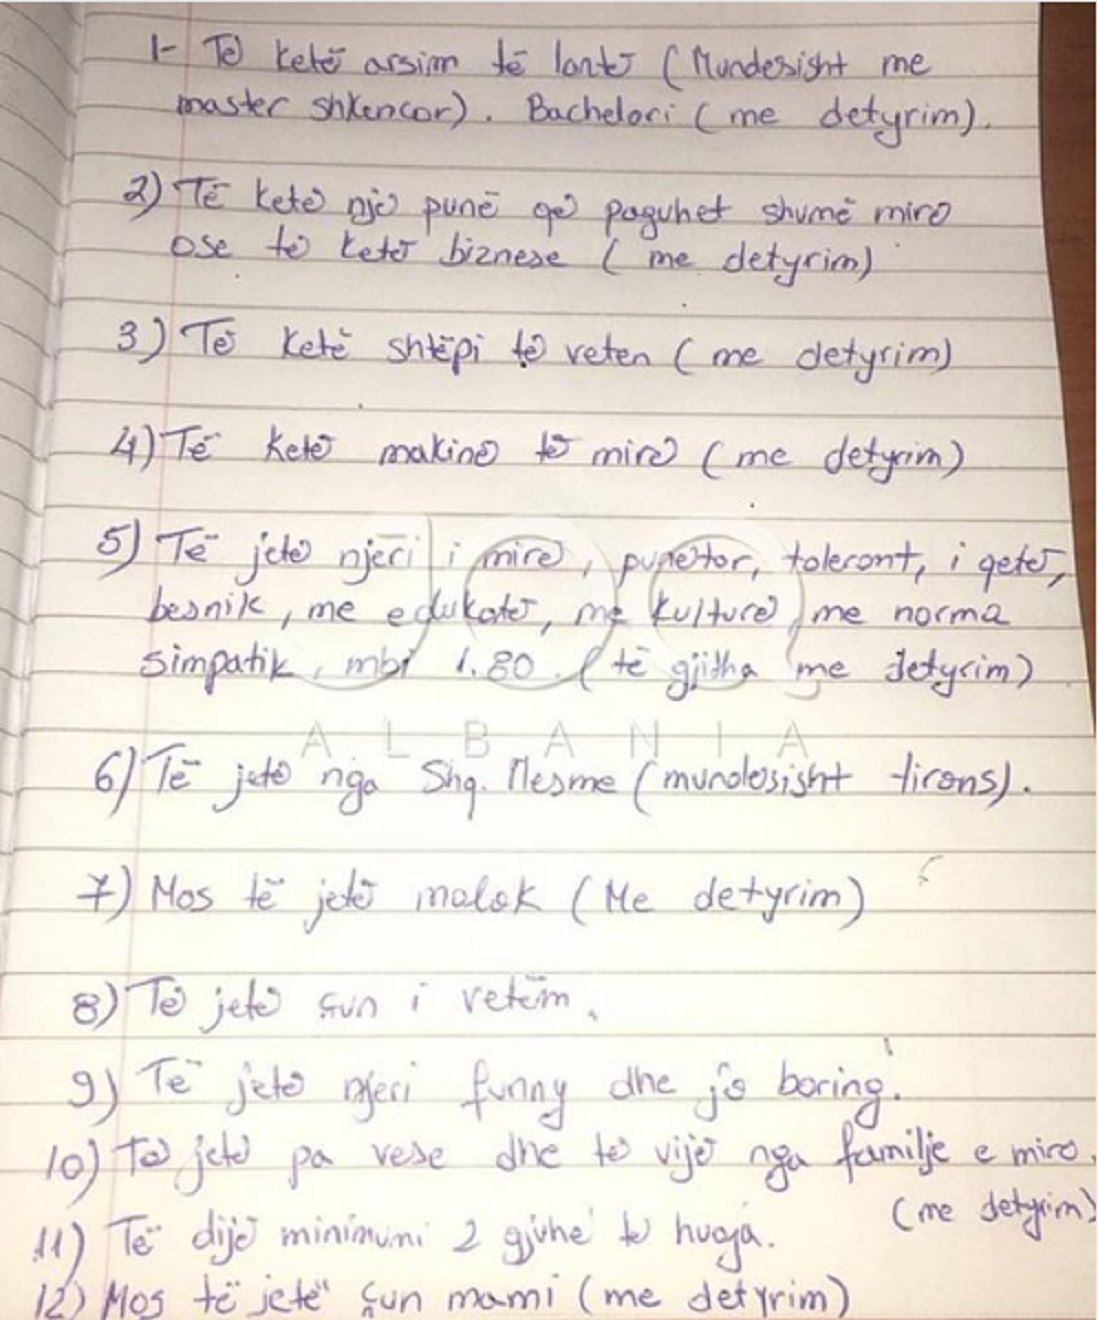 1- Të ketë arsim të lartë (Mundësisht me
master shkencor). Bachelori (me detyrim).
2) Të ketë një punë që paguhet shumë mirë
ose të ketë biznese (me detyrim)
3) Të ketë shtëpi të veten (me detyrim)
4) Të ketë makinë të mirë (me detyrim)
5) Të jetë njeri i mirë, punëtor, tolerant, i qetë,
besnik, me edukatë, me kulturë, me norma
simpatik, mbi 1.80. (të gjitha me detyrim)
ALBANIA
6) Të jetë nga Shq. Mesme (mundësisht tirons).
7) Mos të jetë malok (Me detyrim)
8) Të jetë çun i vetëm.
9) Të jetë njeri funny dhe jo boring.
10) Të jetë pa vese dhe të vijë nga familje e mirë.
(me detyrim)
11) Të dijë minimumi 2 gjuhë të huaja.
12) Mos të jetë çun mami (me detyrim)